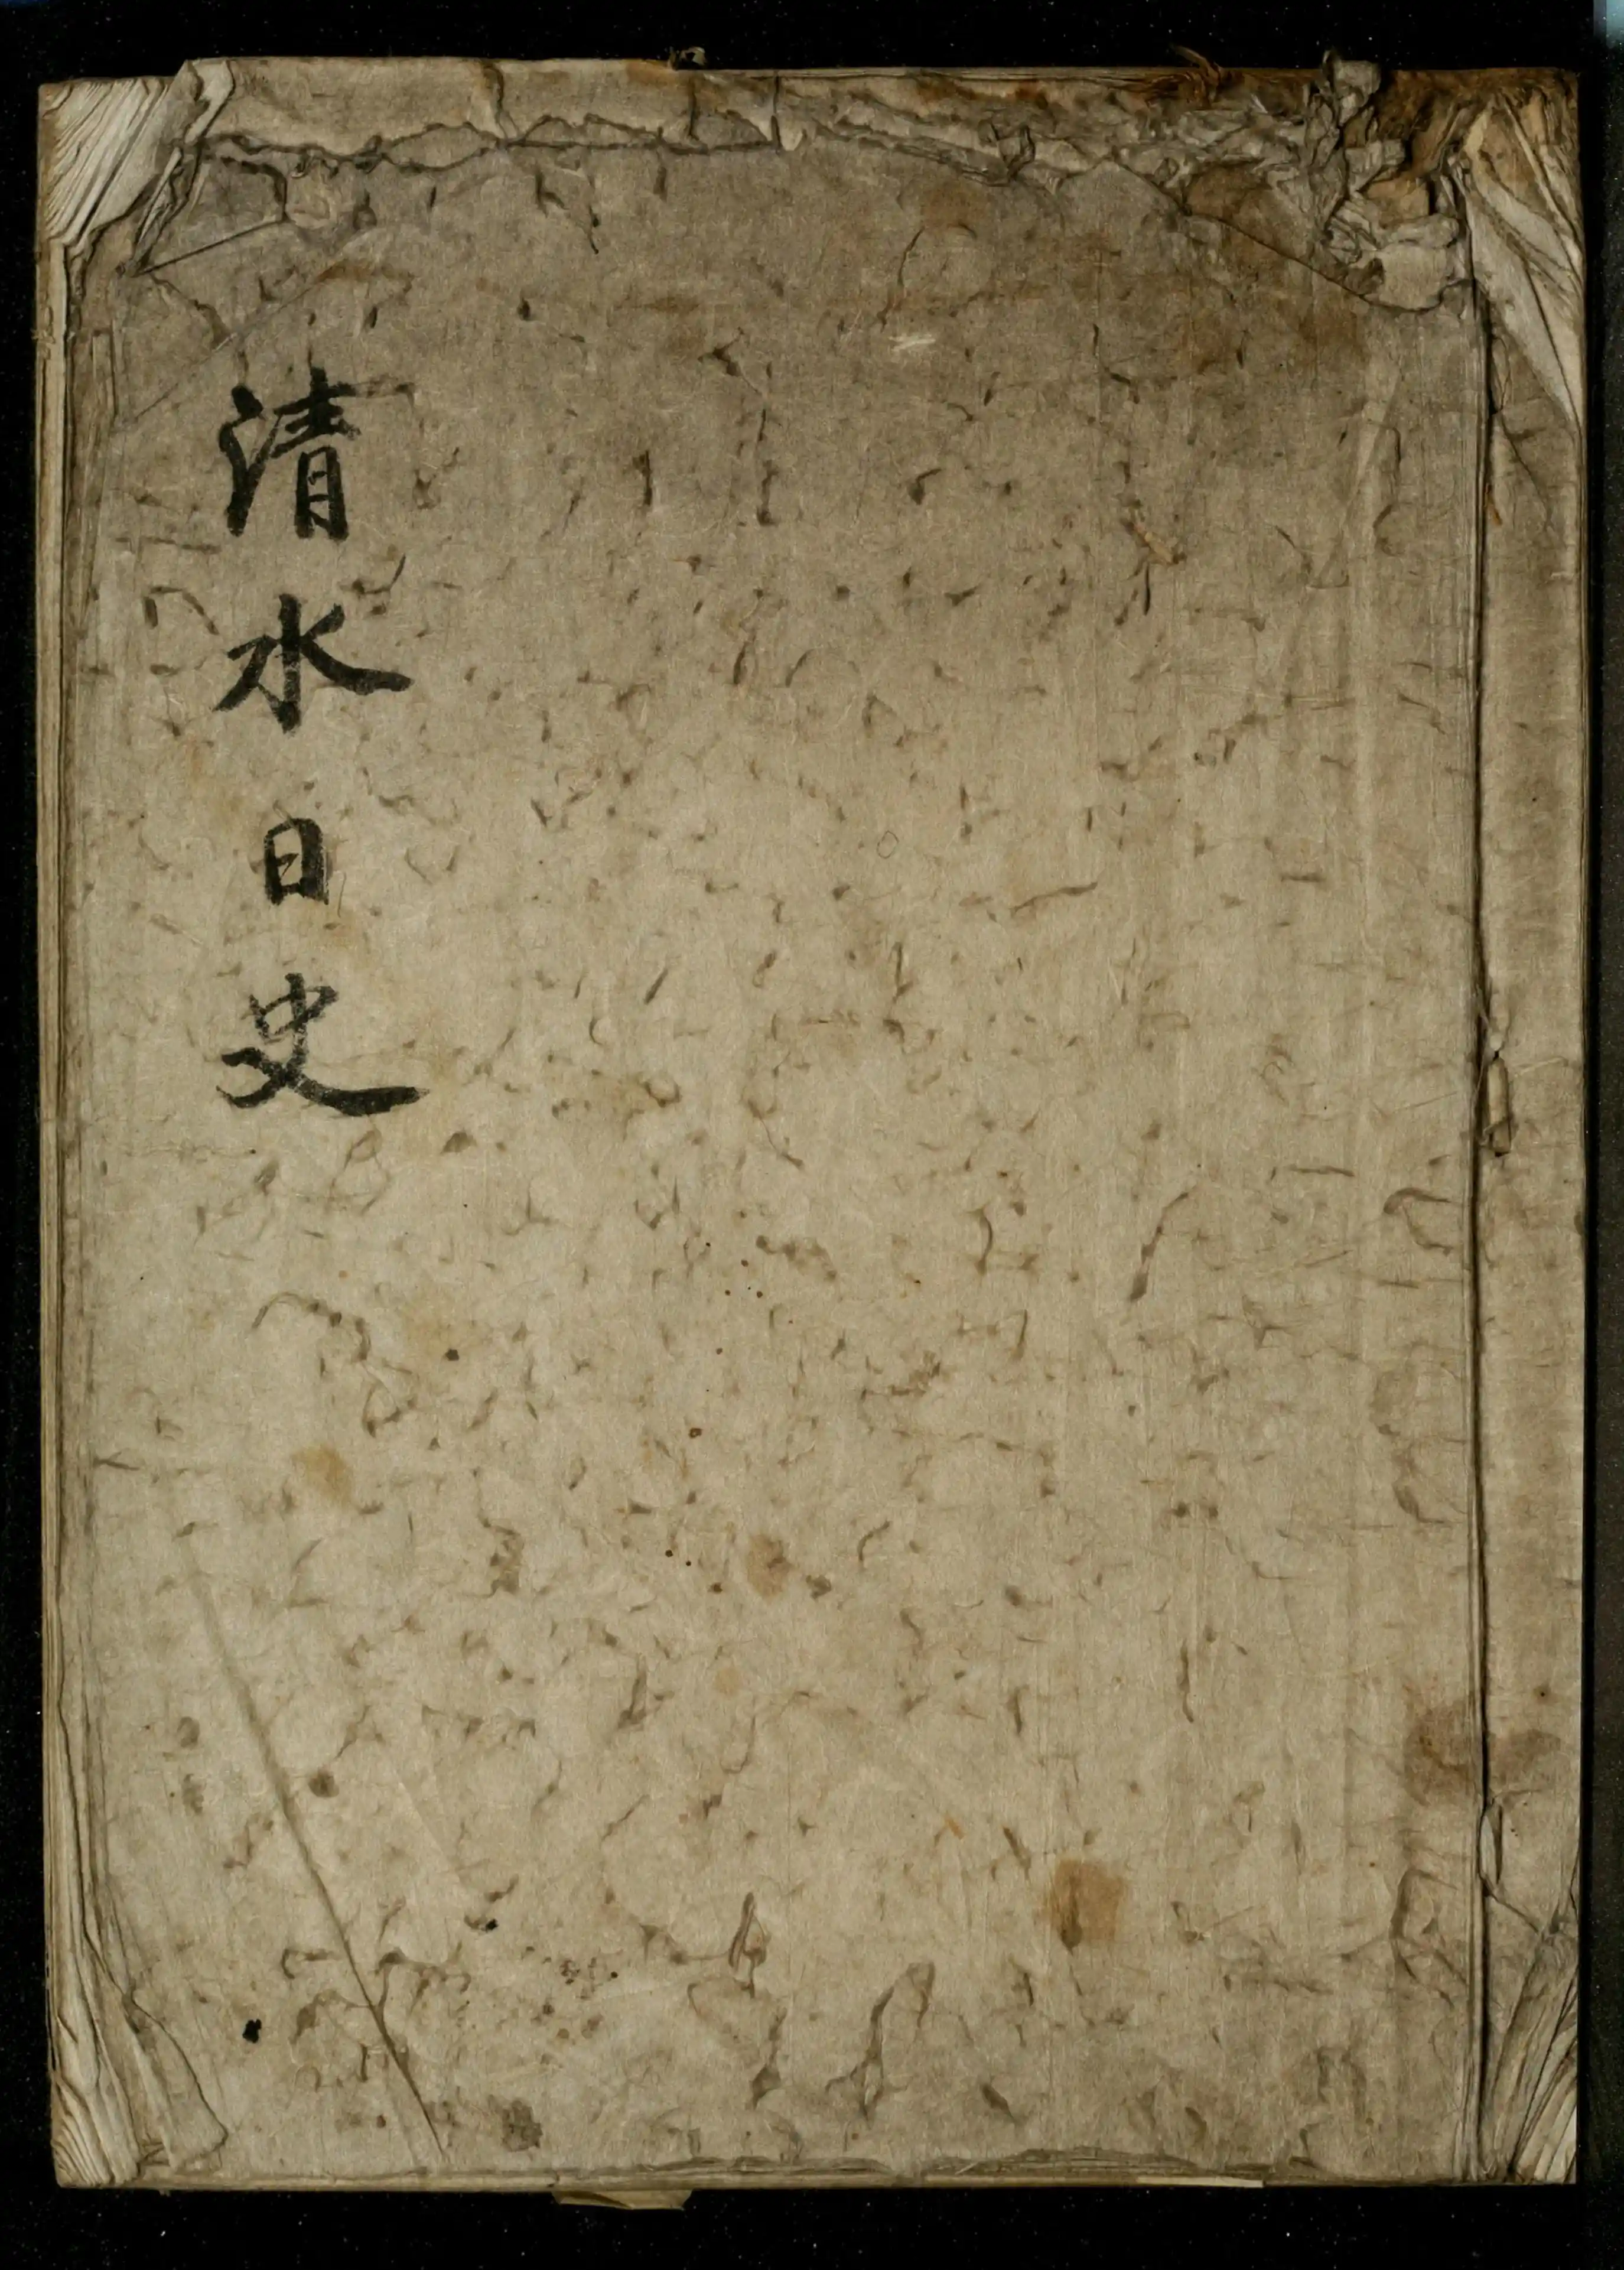 清水日史